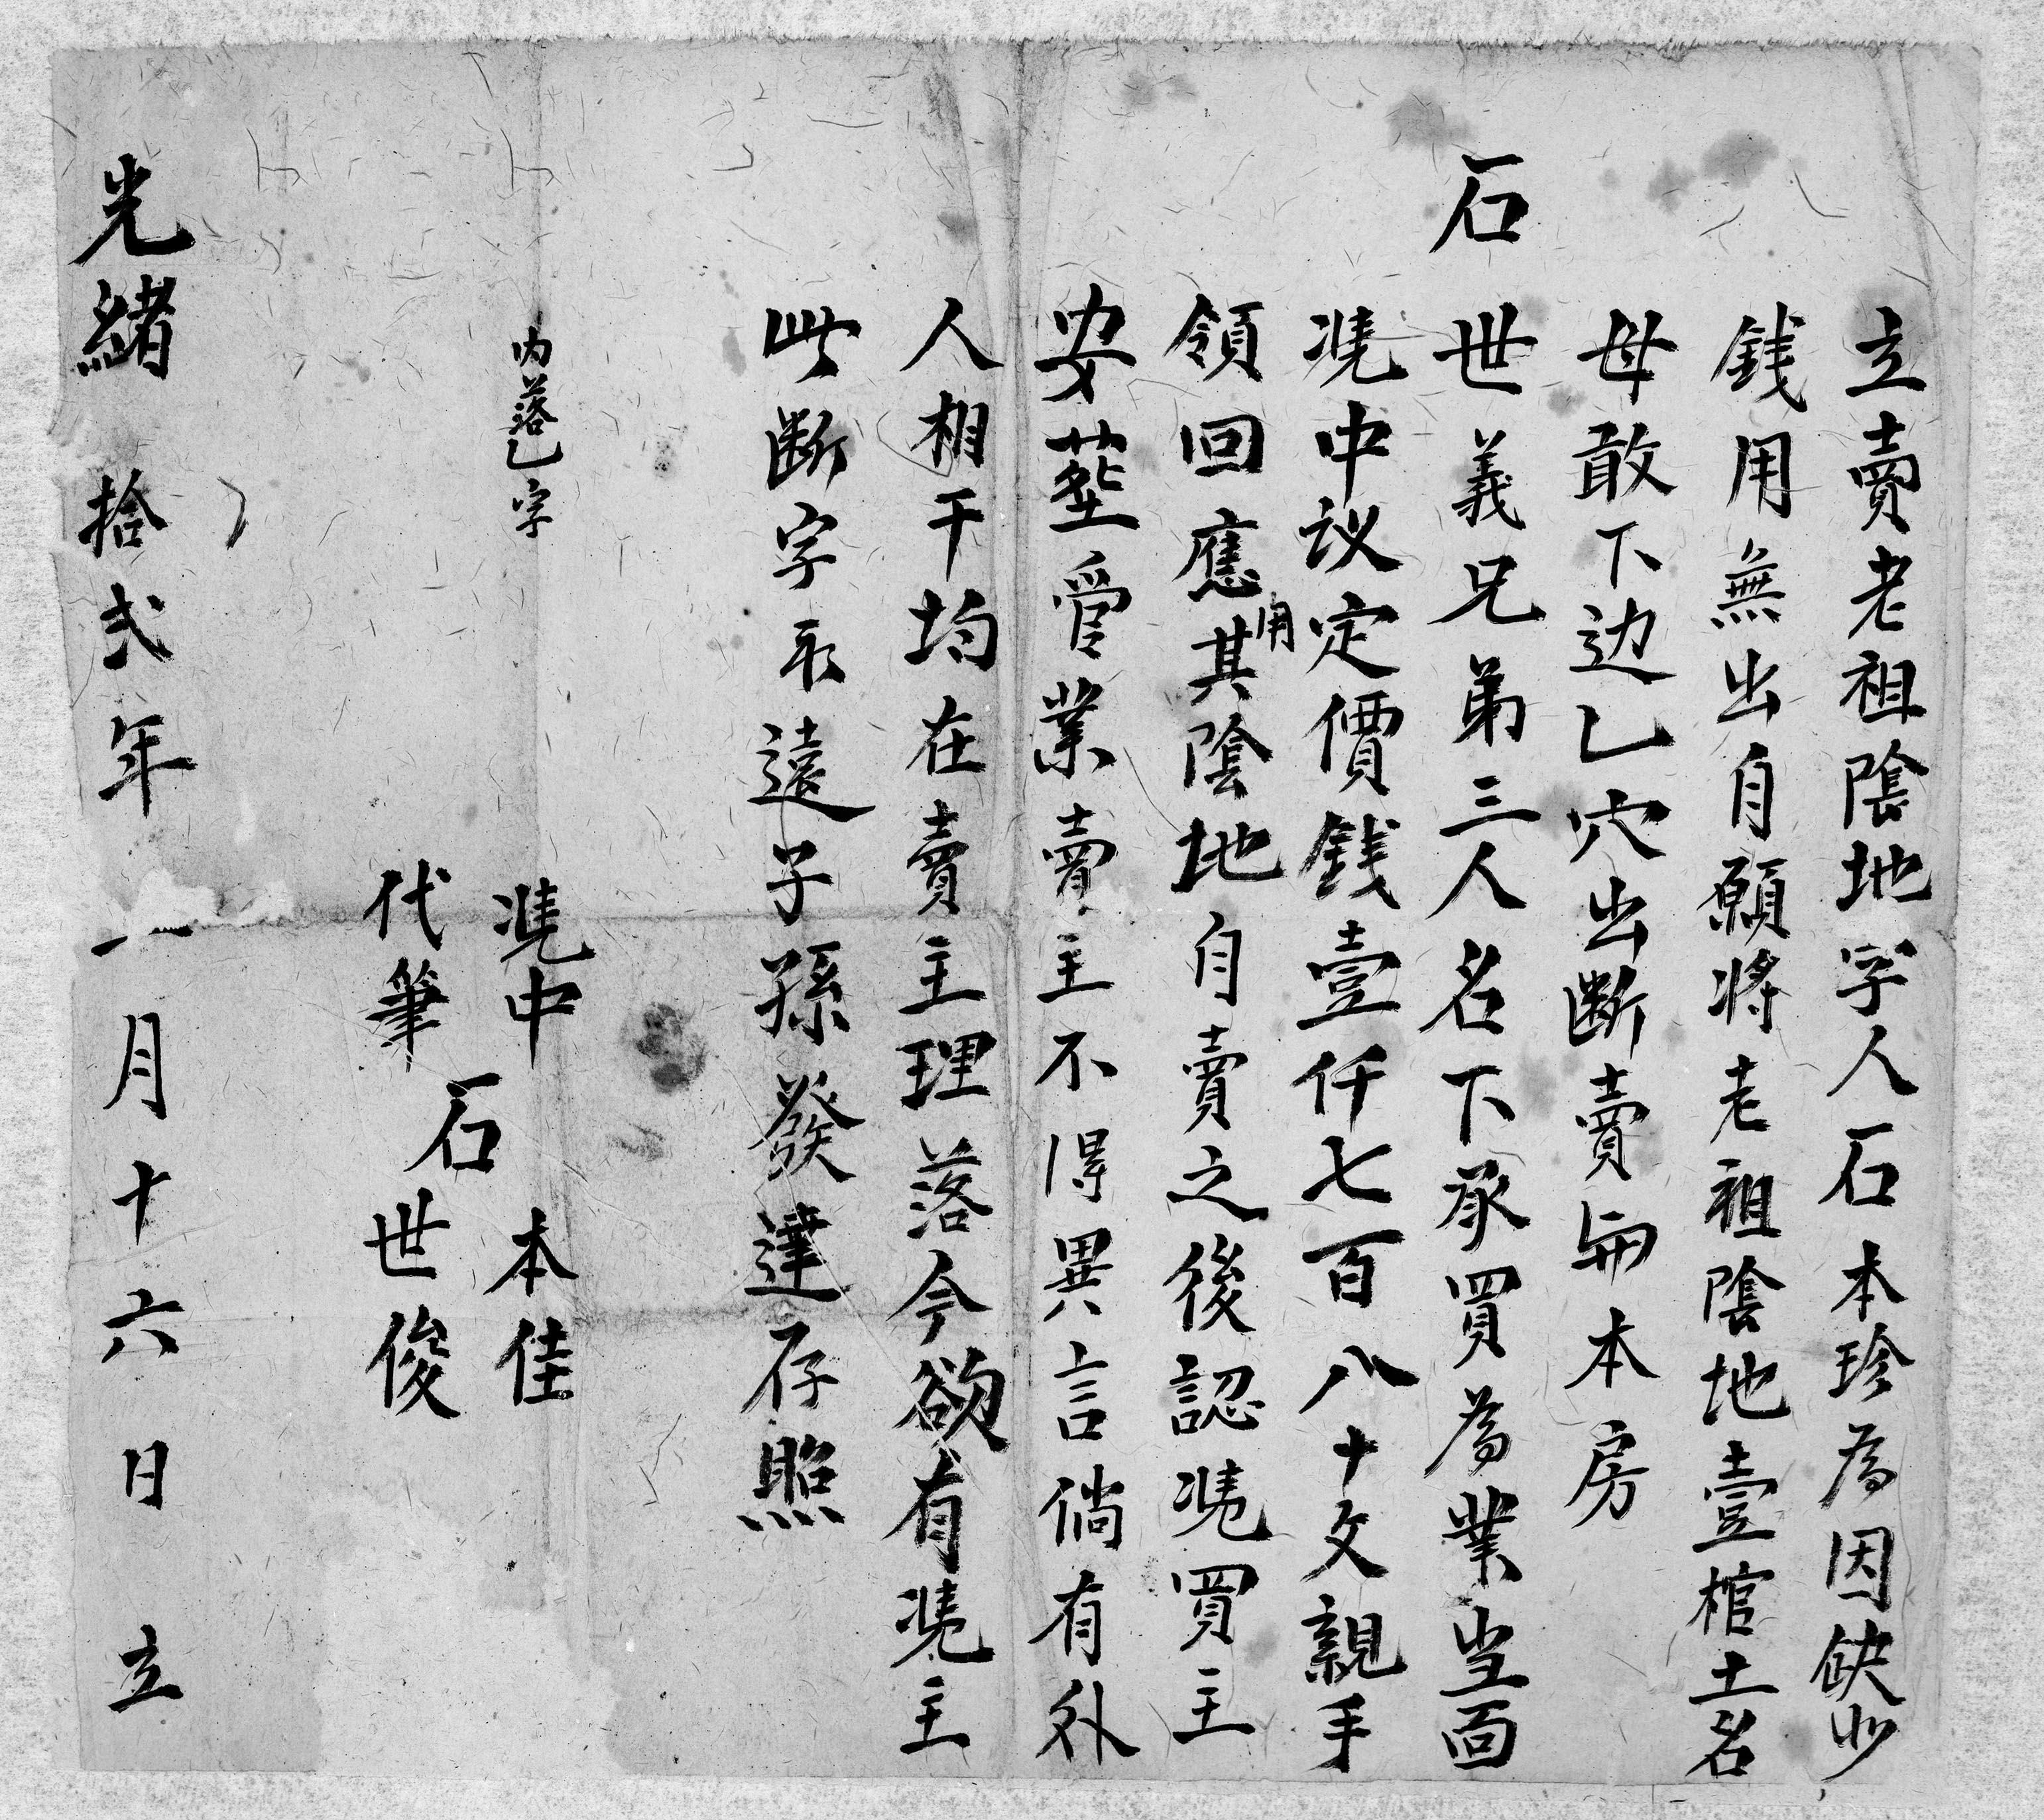 立賣老祖陰地字人石本珍為因缺少
錢用無出自願將老祖陰地壹棺土名
母敢下边乙穴出断賣與本房
石世義兄弟三人名下承買為業当面
凴中议定價錢壹仟七百八十文親手
領回應用其陰地自賣之後認凴買主
安塟管業賣主不得異言倘有外
人相干均在賣主理落今欲有凴主
此断字永遠子孫發達存照
内落乙字
凴中 石 本佳
代筆 世俊
光緒拾弍年一月十六日立